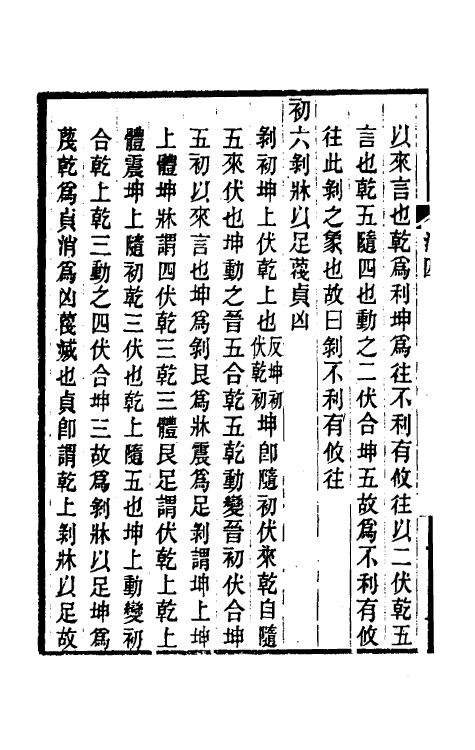 以來言也乾爲利坤爲往不利有攸往以二伏乾五
言也乾五隨四也動之二伏合坤五故爲不利有攸
往此剝之象也故曰剝不利有攸往
初六剝牀以足蔑貞凶
剝初坤上伏乾上也反坤初伏乾初坤卽隨初伏來乾自隨
五來伏也坤動之晉五合乾五乾動變晉初伏合坤
五初以來言也坤爲剝艮爲牀震爲足剝謂坤上坤
上體坤牀謂四伏乾三乾三體艮足謂伏乾上乾上
體震坤上隨初乾三伏也乾上隨五也坤上動變初
合乾上乾三動之四伏合坤三故爲剝牀以足坤爲
蔑乾爲貞消爲凶蔑烕也貞卽謂乾上剝牀以足故